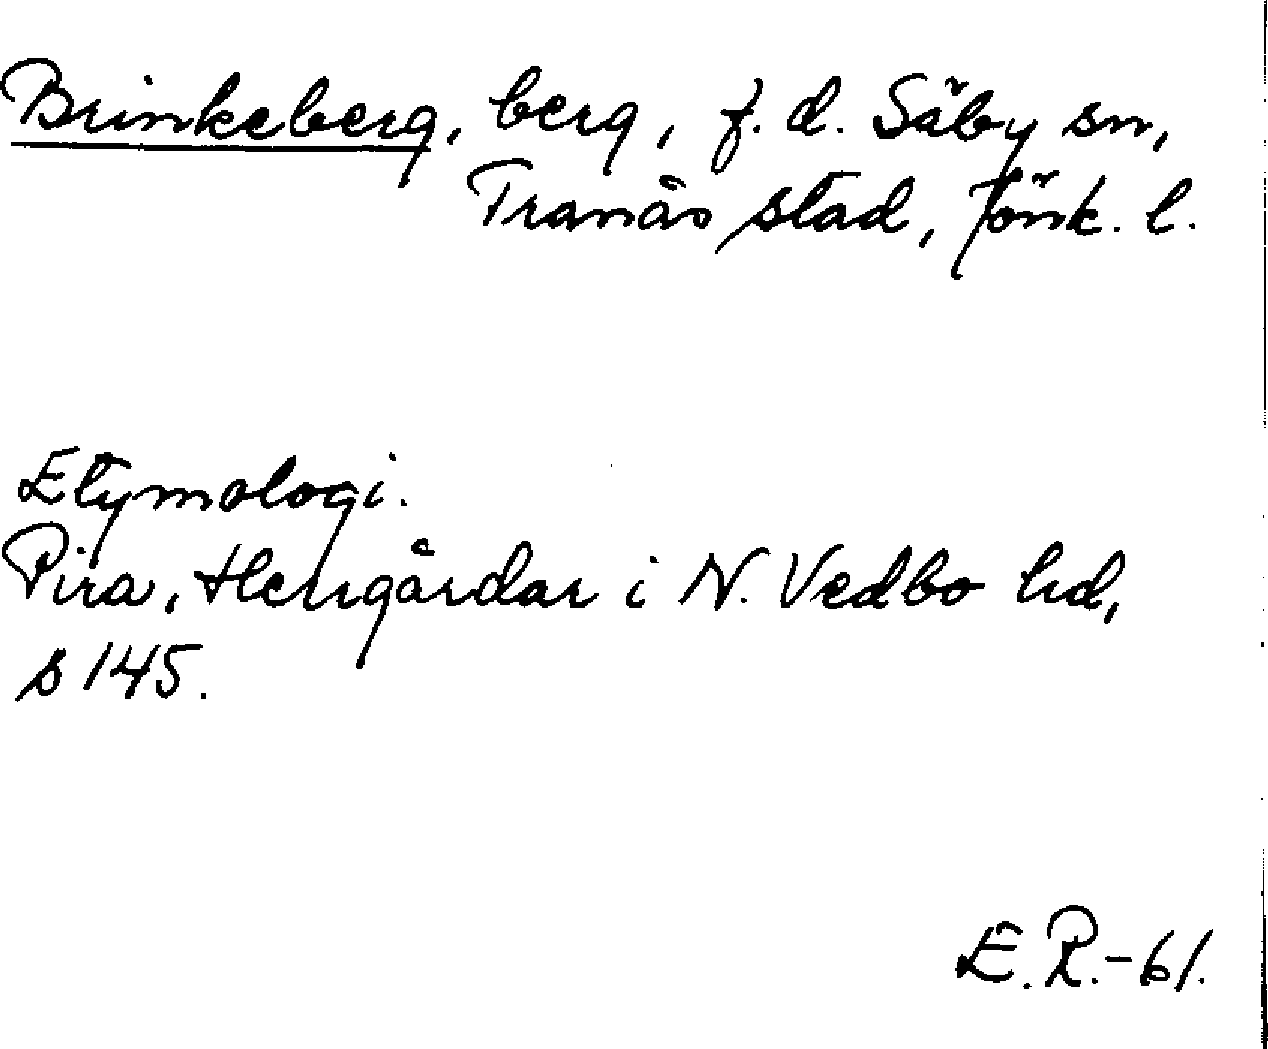 Brinkeberg, berg, f.d. Säby sn,
Tranås stad, Jönk. l.
Etymologi.
Pira, Herrgårdar i N. Vedbo hd,
s 145.
E.R.-61.